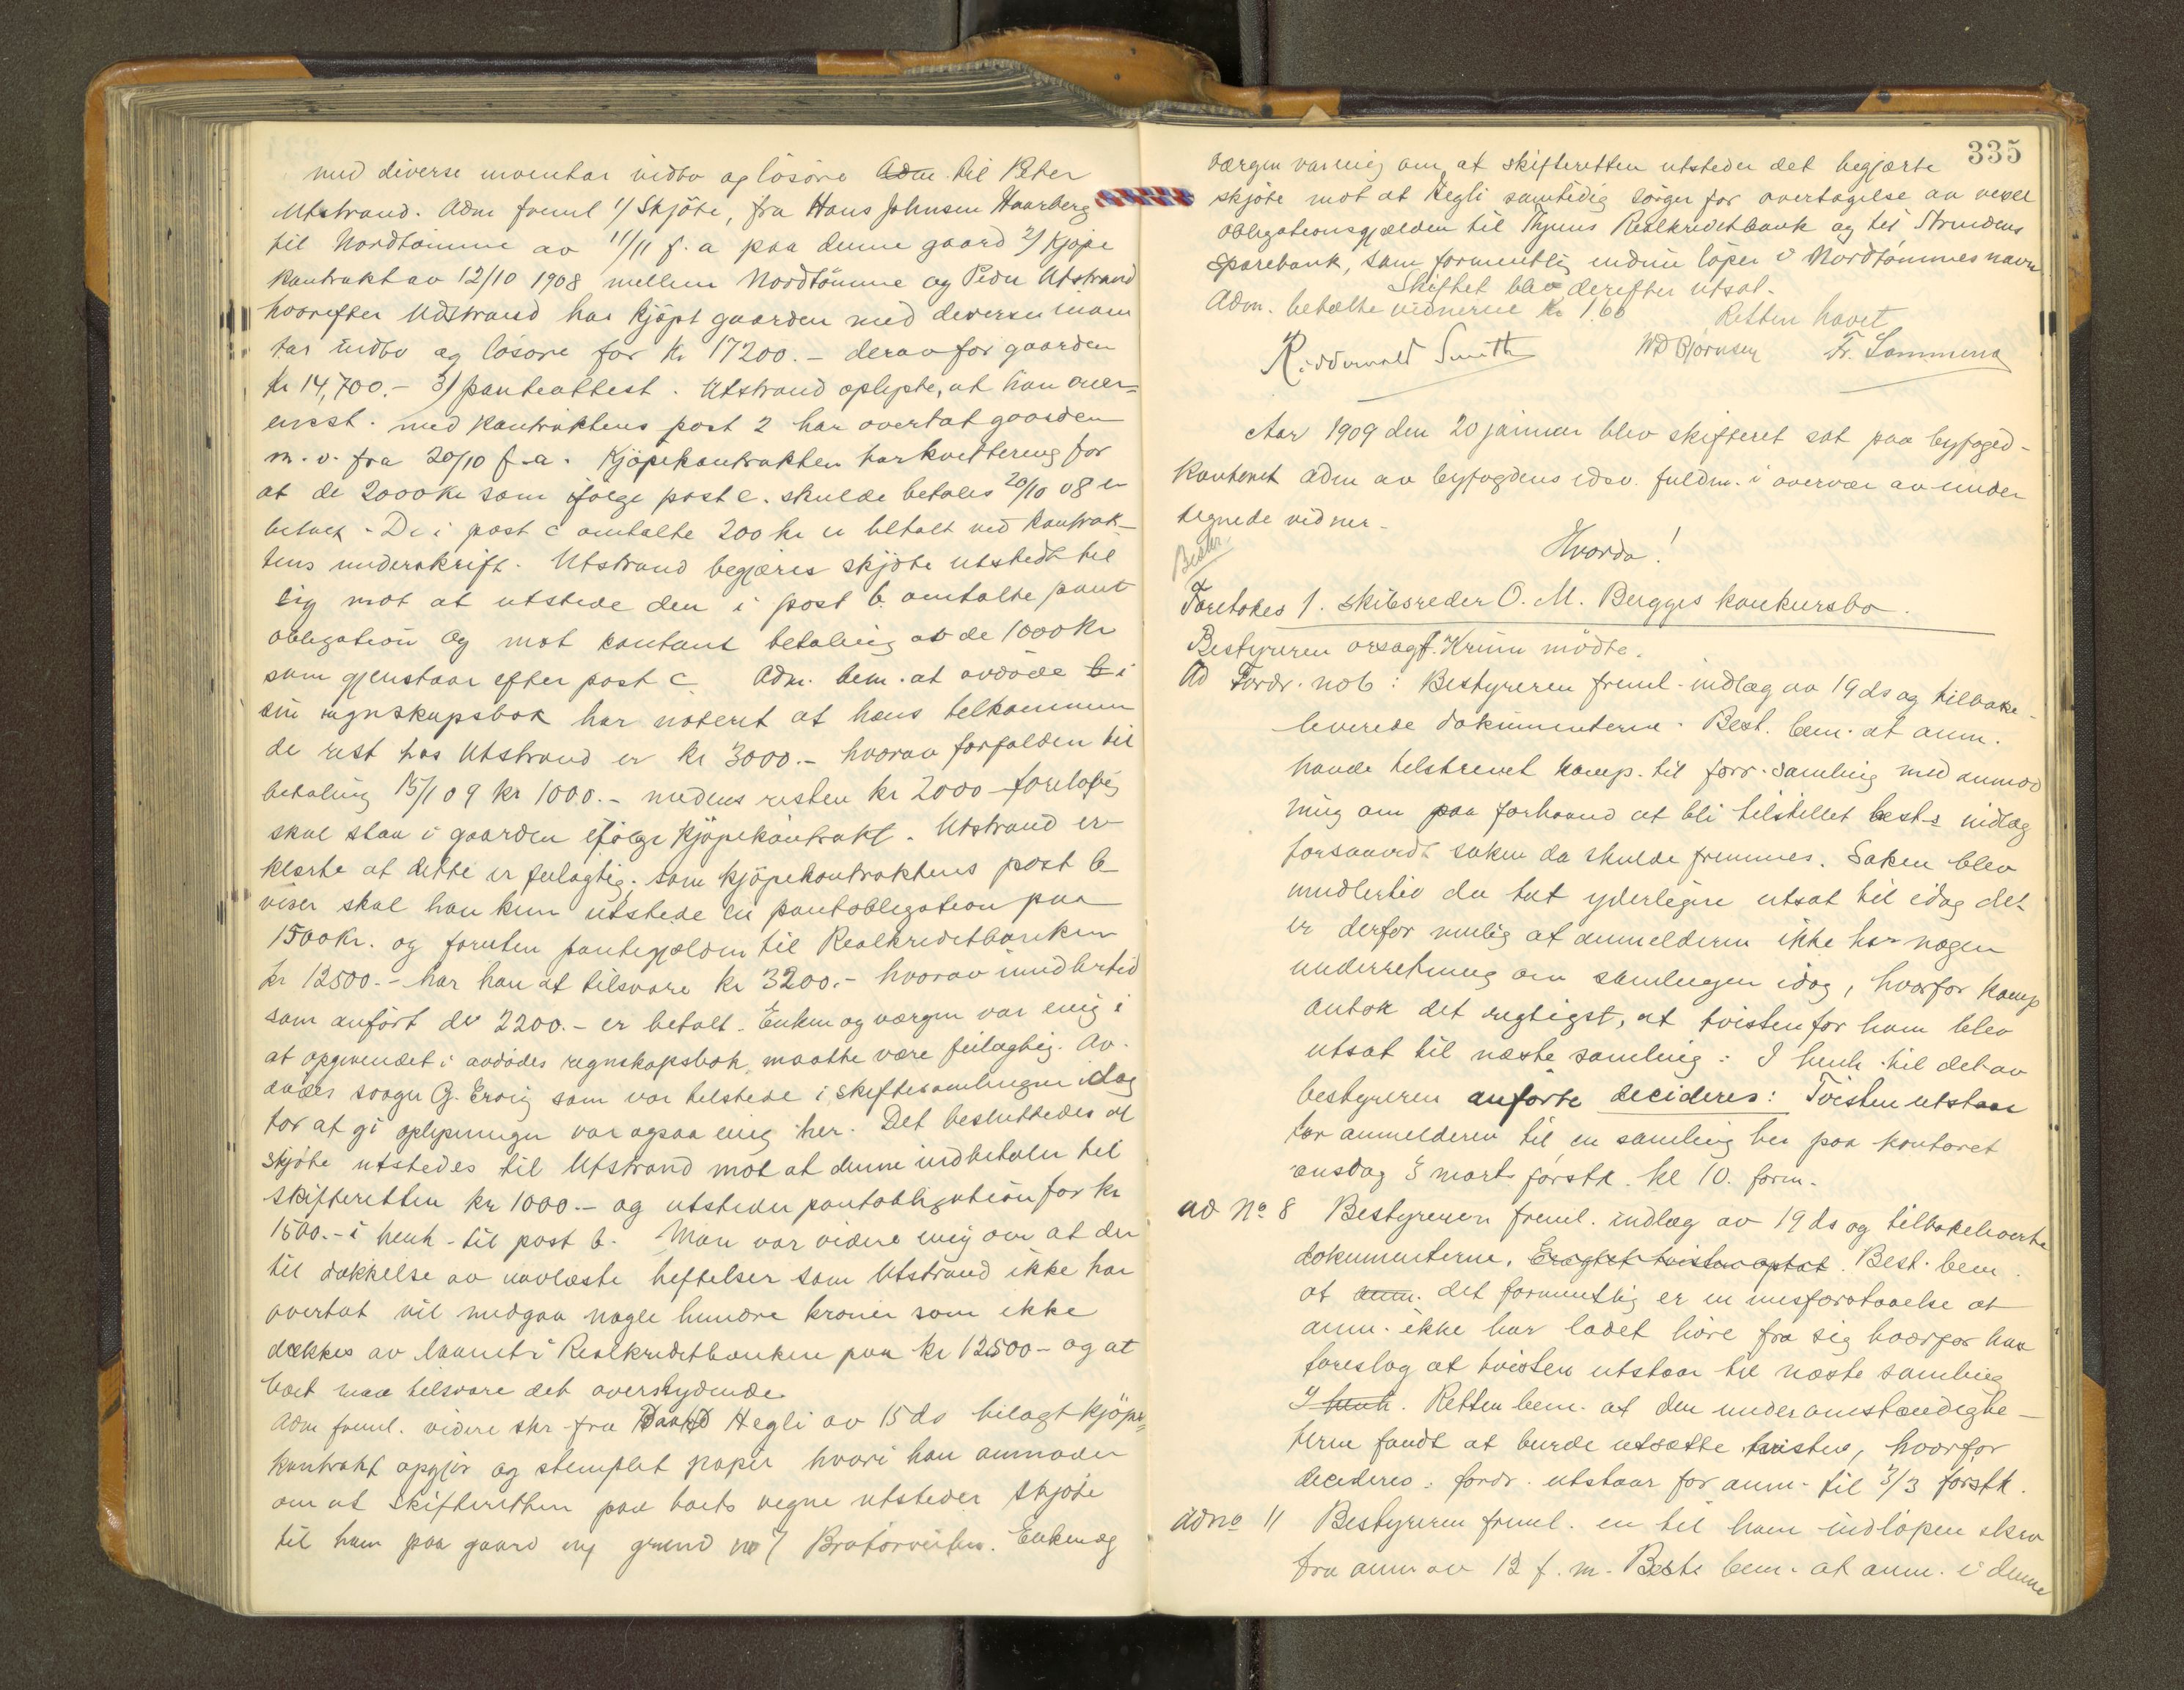 med diverse inventar indbo og løsøre Adm. til Peter
Utstrand. Adm freml 1/ Skjöte, fra Hans Johnsen Haarberg
til Nordtömme av 11/11 f. a paa denne gaard 2/ Kjöpe
kontrakt av 12/10 1908 mellem Nordtömme og Peder Utstrand
hvorefter Udstrand har kjöpt gaarden med diverse inven
tar indbo og lösöre for kr 17200.- derav for gaarden
kr 14,700.- 3) panteattest. Utstrand oplyste, at han over-
ensst. med kontraktens post 2 har overtat gaarden
m. v. fra 20/10 f.a. Kjöpekontrakten har kvittering for
at de 2000 kr som ifölge post c. skulde betales 20/10 08 er
betalt. De i post c omtalte 200 kr er betalt ved kontrak-
tens underskrift. Utstrand begjæres skjöte utstedt til
sig mot at utstede den i post b. omtalte pant
obligation og mot kontant betaling av de 1000 kr
som gjenstaar efter post c. Adm. bem. at avdöde b i
sin regnskapsbok har noteret at hans tilkommen
de rest hos Utstrand er kr 3000.- hvorav forfalden til
betaling 15/1 09 kr 1000.- medens resten kr 2000 foreløpig
skal staa i gaarden ifölge kjöpekontrakt. Utstrand er-
klærte at dette er feilagtig; som kjöpekontraktens post b
viser skal han kun utstede en pantobligation paa
1500 kr. og foruten pantegjælden til Realkreditbanken
kr 12500.- har han at tilsvare kr 3200.- hvorav imidlertid
som anfört der 2200.- er betalt. Enken og værgen var enig i
at opgivendet i avdödes regnskapsbok, maatte være feilagtig. Av-
dödes svoger G. Ervig som var tilstede i skiftesamlingen idag
for at gi oplysninger var ogsaa enig her. Det besluttedes at
skjöte utstedes til Utstrand mot at denne indbetaler til
skifteretten kr 1000.- og utsteder pantobligation for kr
1500.- i henh. til post b. Man var videre enig om at der
til dækkelse av uavlæste heftelser som Utstrand ikke har
overtat vil medgaa nogle hundre kroner som ikke
dækkes av laanet i Realkreditbanken paa kr 12500- og at
boet maa tilsvare det overskydende
Adm freml. videre skr fra Hegli av 15 ds bilagt kjöpe-
kontrakt opgjör og stemplet papir hvori han anmoder
om at skifteretten paa boets vegne utsteder skjöte
til ham paa gaard og grund no 7 Bratörveiten. Enken og
335
værgen var enig om at skifteretten utsteder det begjærte
skjöte mot at Hegli samtidig sörger for overtagelse av
obligationsgjælden til Realkreditbank og til Strindens
Sparebank, som formentlig endnu löper i Nordtömmes navn
Skiftet blev derefter utsat.
Adm. betalte vidnerne kr 1.60
Retten hævet
Ridderwold Smith WD Björnsen Fr. Lammena
Aar 1909 den 20 januar blev skifteret sat paa byfoged-
kontoret adm av byfogdens edsv. fuldm. i overvær av under
tegnede vidner.
Hvorda!
Foretokes 1. skibsreder O. M. Bergges konkursbo.
Bestyreren orsagf. Krinn mödte.
Ad Fordr. no 6: Bestyreren freml. indlæg av 19 ds og tilbake-
leverede dokumenterne. Best. bem. at anm.
havde tilskrevet komp. til forr. samling med anmod
ning om paa forhaand at bli tilstillet best-s indlæg
forsaavidt saken da skulde fremmes. Saken blev
imidlertid da tat yderligere utsat til idag det
er derfor mulig at anmelderen ikke har nogen
underretning om samlingen idag, hvorfor komp
antok det rigtigst, at tvisten for ham blev
utsat til næste samling: I henh. til det av
bestyreren anförte decideres: Tvisten utstaar
for anmelderen til en samling her paa kontoret
onsdag 3 marts förstk. kl 10. form.
ad No 8 Bestyreren freml. indlæg av 19 ds og tilbakeleverte
dokumenterne. Eragtet tvisten optat. Best. bem.
at anm. det formentlig er en misforstaaelse at
anm. ikke har ladet höre fra sig hvorfor han
foreslog at tvisten utstaar til næste samling
I henh. Retten bem. at den under omstændighe-
terne fandt at burde utsætte tvisten, hvorfor
decideres: fordr. utstaar for anm. til 3/3 förstk.
ad no 11 Bestyreren freml. en til ham indlöpen skr
fra anm av 12 f. m. Best. bem. at anm. i denne